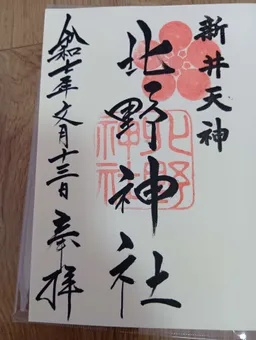 新井天神
北野神社
北野神社
令和七年文月十三日 奉拝